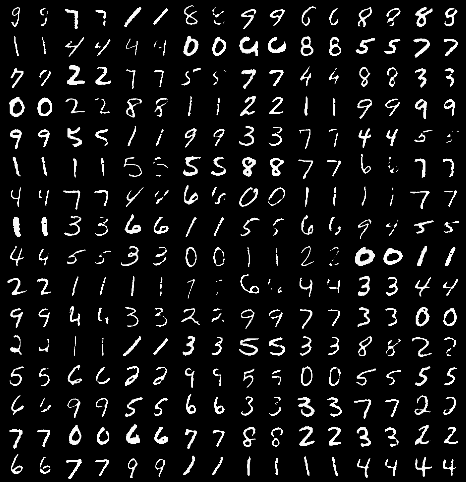 9 9 7 7 1 1 8 8 9 9 6 6 8 8 8 8
1 1 4 4 4 4 0 0 6 6 8 8 5 5 7 7
7 7 2 2 7 7 5 5 7 7 4 4 8 8 3 3
0 0 2 2 8 8 1 1 2 2 1 1 9 9 9 9
9 9 5 5 1 1 9 9 3 3 7 7 4 4 5 5
1 1 1 1 5 5 5 5 8 8 7 7 6 6 7 7
4 4 7 7 4 4 6 6 0 0 1 1 1 1 7 7
1 1 3 3 6 6 1 1 5 5 6 6 9 9 5 5
4 4 5 5 3 3 0 0 1 1 2 2 0 0 1 1
2 2 1 1 1 1 7 6 4 4 3 3 4 4
9 9 4 4 3 3 2 2 9 9 7 7 3 3 0 0
2 2 1 1 1 1 3 3 5 5 3 3 8 8 2 2
5 5 6 6 2 2 9 9 5 5 0 0 5 5 5 5
6 6 9 9 5 5 6 6 3 3 3 3 7 7 2 2
7 7 0 0 6 6 7 7 8 8 2 2 3 3 2 2
6 6 7 7 9 9 1 1 1 1 1 1 4 4 4 4